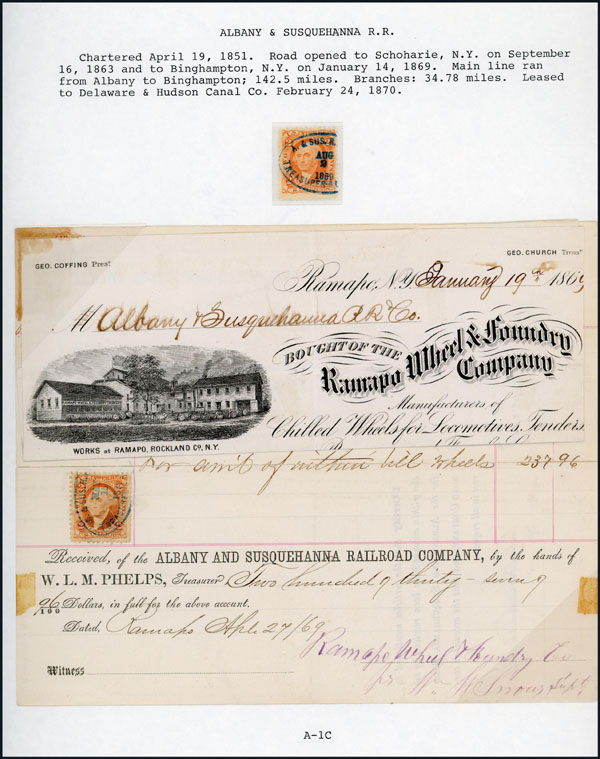 ALBANY & SUSQUEHANNA R.R.
Chartered April 19, 1851. Road opened to Schoharie, N.Y. on September
16, 1863 and to Binghampton, N.Y. on January 14, 1869. Main line ran
from Albany to Binghampton; 142.5 miles. Branches: 34.78 miles. Leased
to Delaware & Hudson Canal Co. February 24, 1870.
A. & SUS. R.
AUG
2
1869
TREASURER
GEO. COFFING Pres't
GEO. CHURCH Treas'r
Ramapo, N.Y. January 19th 1869
M Albany & Susquehanna RR Co.
BOUGHT OF THE
Ramapo Wheel & Foundry
Company
Manufacturers of
Chilled Wheels for Locomotives, Tenders
WORKS at RAMAPO, ROCKLAND Co, N.Y.
For am't of within bill wheels 237.96
Received, of the ALBANY AND SUSQUEHANNA RAILROAD COMPANY, by the hands of
W. L. M. PHELPS, Treasurer Two hundred & thirty-seven &
96/100 Dollars, in full for the above account.
Dated, Ramapo Apl 27/69
Ramapo Wheel & Foundry Co
Witness
pr Supt
A-1C